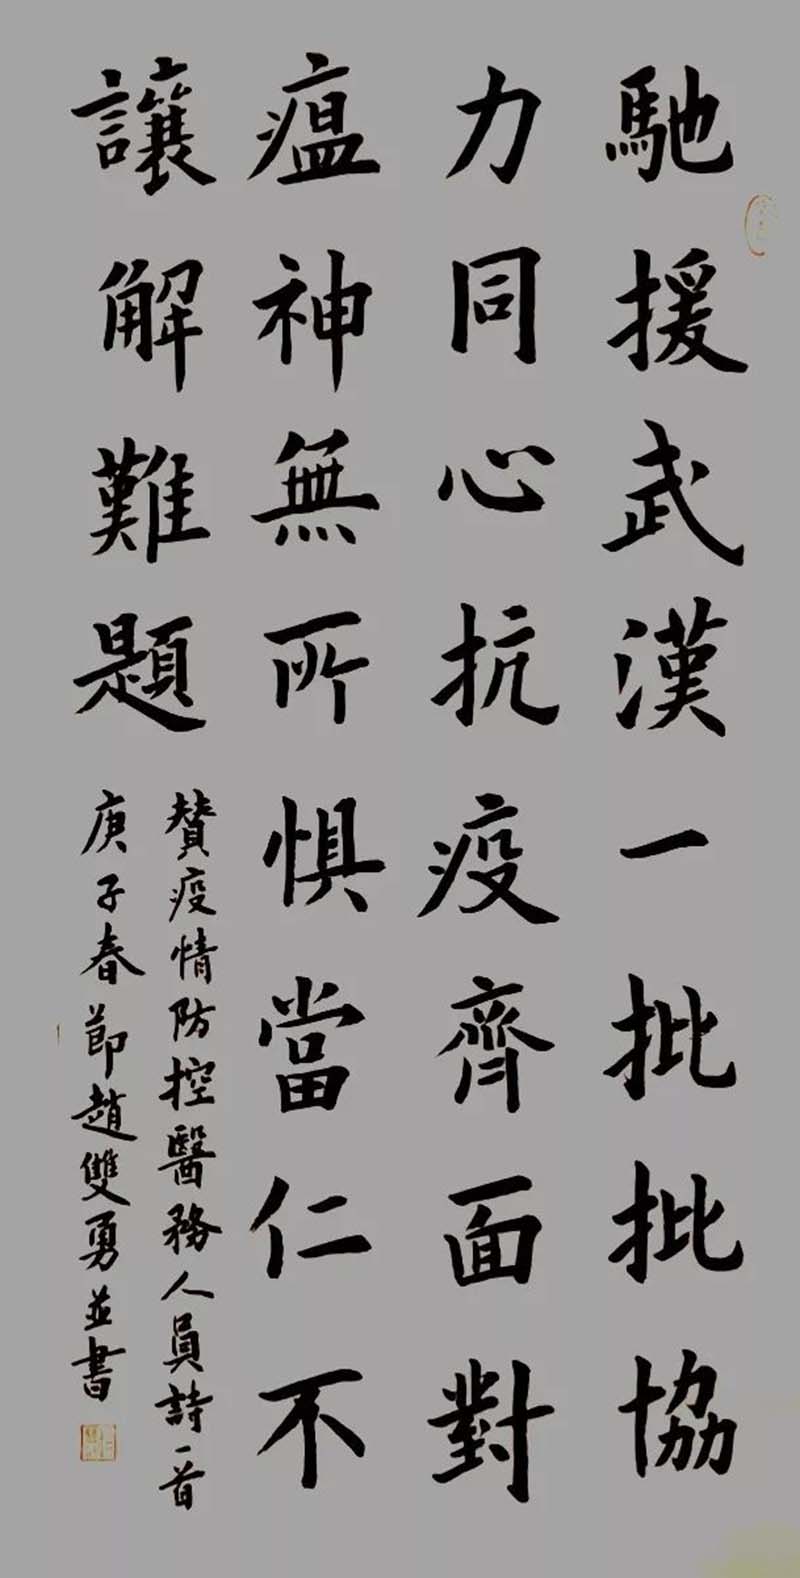 馳援武漢一批批協
力同心抗疫齊面對
瘟神無所懼當仁不
讓解難題
贊疫情防控醫務人員詩一首
庚子春節趙雙勇並書